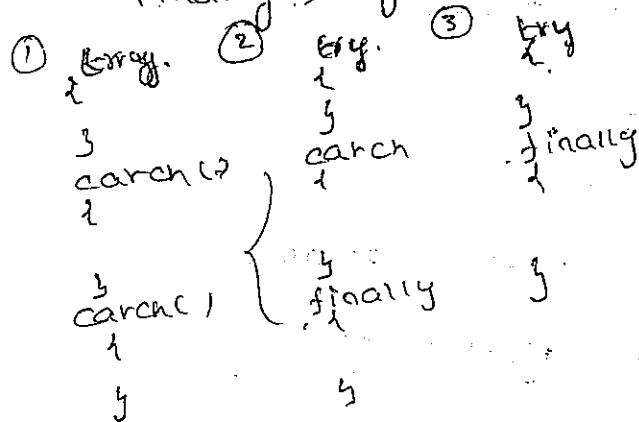 ① try.
{
}
catch()
{
}
catch()
{
}
② try.
{
}
catch
{
}
finally
{
}
③ try
{
}
finally
{
}